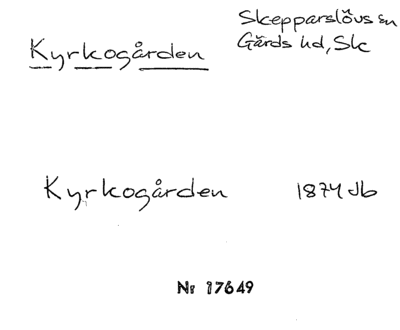 Skepparslövs sn
Kyrkogården Gärds hd, Sk
Kyrkogården 1874 db
Nr 17649